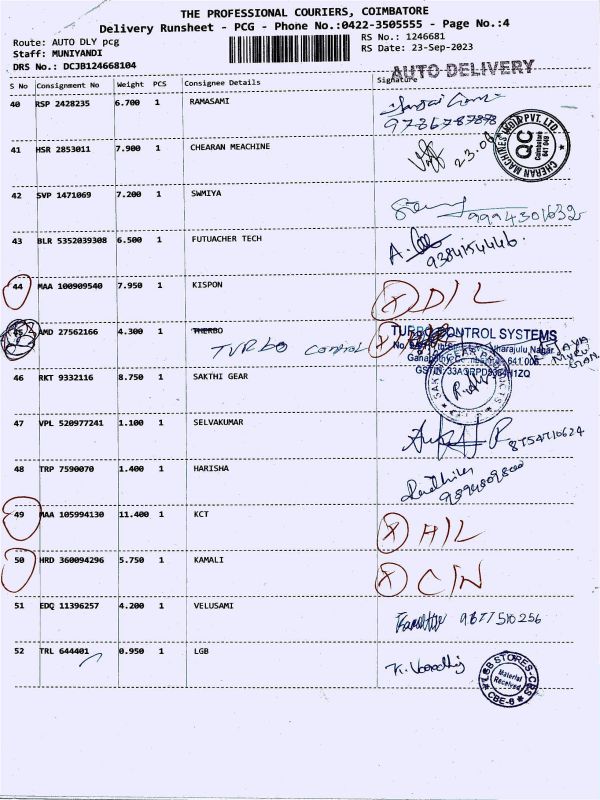 THE PROFESSIONAL COURIERS, COIMBATORE
Delivery Runsheet - PCG - Phone No.:0422-3505555 - Page No.:4
Route: AUTO DLY pcg RS No.: 1246681
Staff: MUNIYANDI RS Date: 23-Sep-2023
DRS No.: DCJB124668104 AUTO DELIVERY
S No Consignment No Weight PCS Consignee Details Signature
40 RSP 2428235 6.700 1 RAMASAMI
9786787878
41 HSR 2853011 7.900 1 CHEARAN MEACHINE 23.09
CHERAN MACHINES INDIA PVT. LTD.
QC
Coimbatore
641 049
42 SVP 1471069 7.200 1 SWMIYA
9994301632
43 BLR 5352039308 6.500 1 FUTUACHER TECH
9384154446
44 MAA 100909540 7.950 1 KISPON X D/L
45 AMD 27562166 4.300 1 THERBO TURBO CONTROL SYSTEMS
TURBO Control
46 RKT 9332116 8.750 1 SAKTHI GEAR
SAKTHI GEAR PRODUCTS
47 VPL 520977241 1.100 1 SELVAKUMAR
8754710624
48 TRP 7590070 1.400 1 HARISHA
49 MAA 105994130 11.400 1 KCT X A/L
50 HRD 360094296 5.750 1 KAMALI X C/N
51 EDQ 11396257 4.200 1 VELUSAMI 9877510256
52 TRL 644401 0.950 1 LGB
LGB STORES-CBS
Material
Received
CBE-6